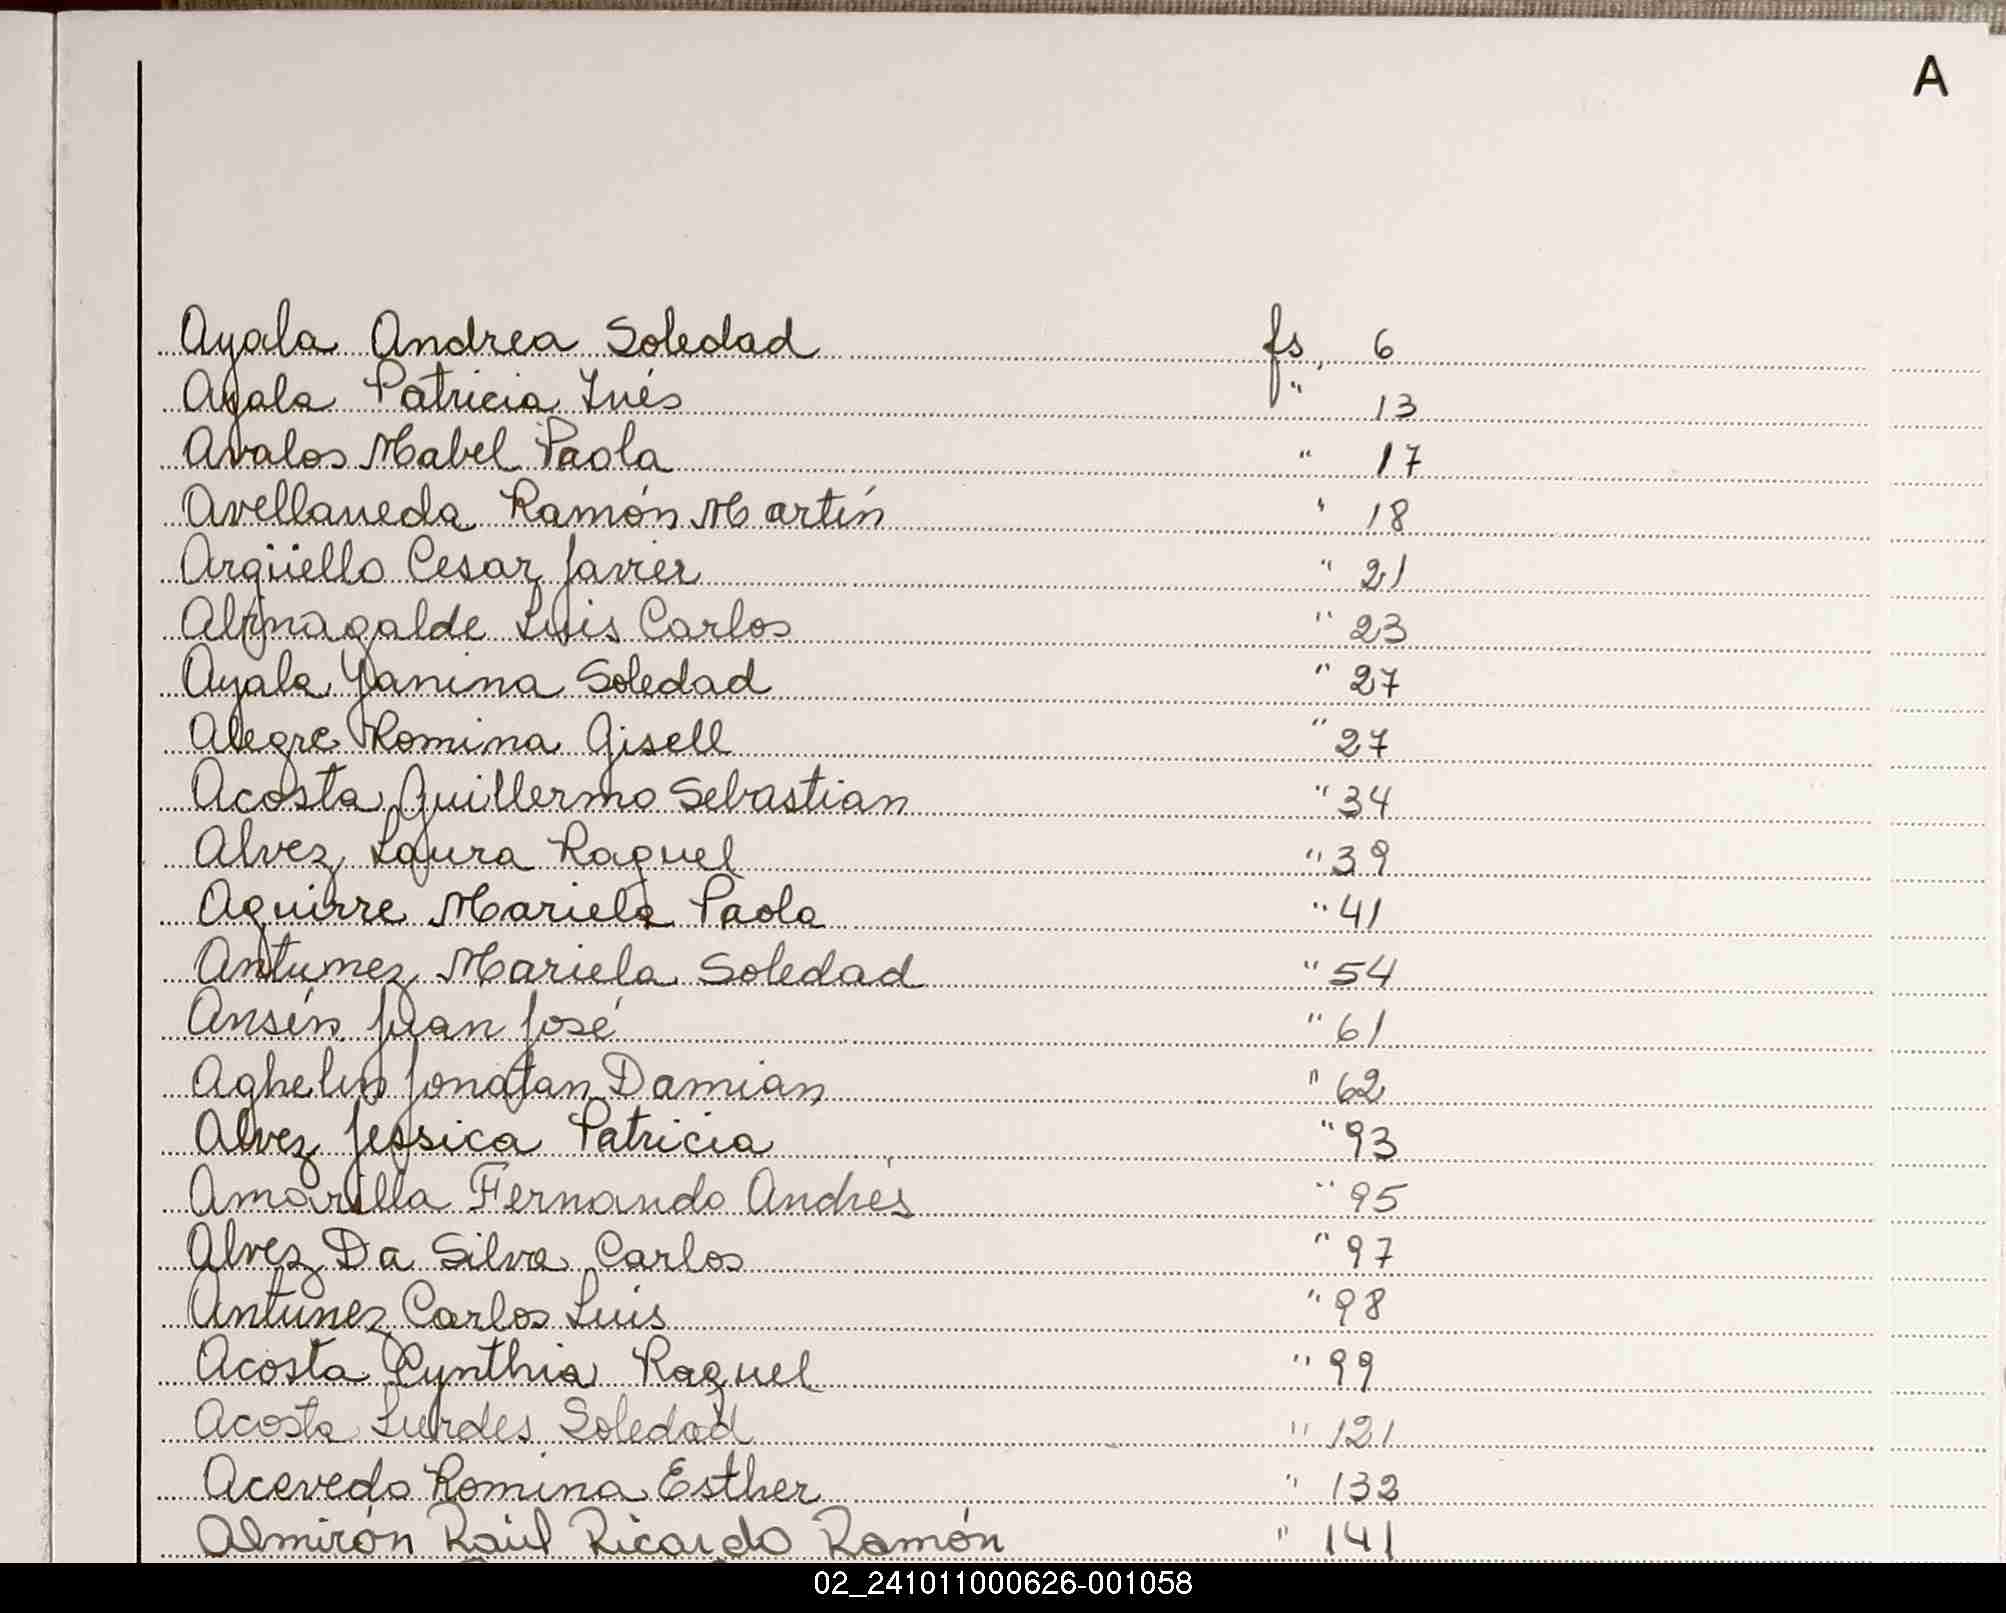 A
Ayala Andrea Soledad fs. 6
Ayala Patricia Inés " 13
Avalos Mabel Paola " 17
Avellaneda Ramón Martín " 18
Argüello Cesar Javier " 21
Luis Carlos " 23
Ayala Yanina Soledad " 27
Alegre Romina Gisell " 27
Acosta Guillermo Sebastian " 34
Alvez Laura Raquel " 39
Aguirre Mariela Paola " 41
Antumez Mariela Soledad " 54
Ansín Juan José " 61
Aghelin Jonatan Damian " 62
Alvez Jessica Patricia " 93
Amarilla Fernando Andrés " 95
Alvez Da Silva Carlos " 97
Antunez Carlos Luis " 98
Acosta Cynthia Raquel " 99
Acosta Lurdes Soledad " 121
Acevedo Romina Esther " 132
Almirón Raúl Ricardo Ramón " 141
02_241011000626-001058